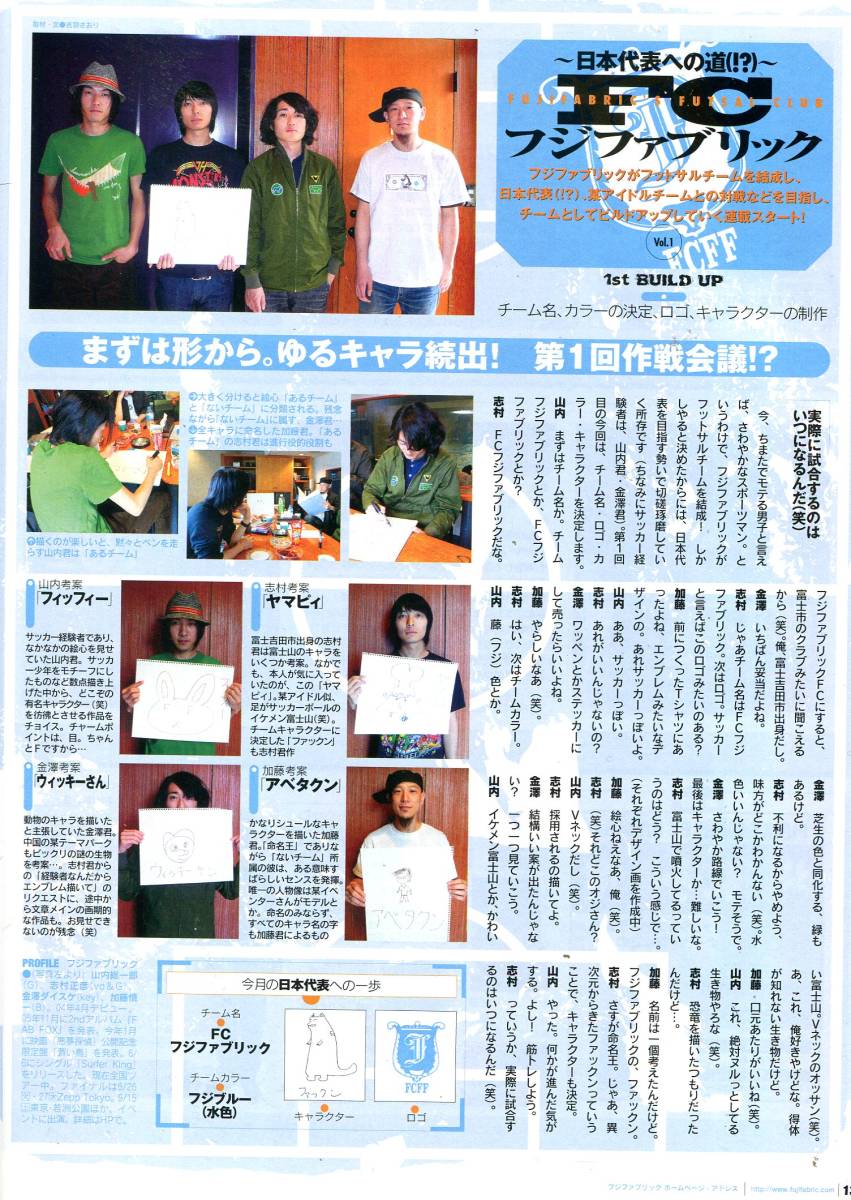 取材・文●吉羽さおり
〜日本代表への道(!?)〜
FC
FUJIFABRIC'S FUTSAL CLUB
フジファブリック
フジファブリックがフットサルチームを結成し、
日本代表(!?)、某アイドルチームとの対戦などを目指し、
チームとしてビルドアップしていく連載スタート!
Vol.1
FCFF
1st BUILD UP
チーム名、カラーの決定、ロゴ、キャラクターの制作
まずは形から。ゆるキャラ続出! 第1回作戦会議!?
大きく分けると絵心「あるチーム」
と「ないチーム」に分類される。残念
ながら「ないチーム」に属す、金澤君…
全キャラに命名した加藤君。「ある
チーム」の志村君は進行役的役割も
描くのが楽しいと、黙々とペンを走
らす山内君は「あるチーム」
実際に試合するのは
いつになるんだ(笑)
今、ちまたでモテる男子と言え
ば、さわやかなスポーツマン。と
いうわけで、フジファブリックが
フットサルチームを結成! しか
しやると決めたからには、日本代
表を目指す勢いで切磋琢磨してい
く所存です(ちなみにサッカー経
験者は、山内君・金澤君)。第1回
目の今回は、チーム名・ロゴ・カ
ラー・キャラクターを決定します。
山内 まずはチーム名か。チーム
フジファブリックとか、FCフジ
ファブリックとか?
志村 FCフジファブリックだな。
フジファブリックFCにすると、
富士市のクラブみたいに聞こえる
から(笑)。俺、富士吉田市出身だし。
金澤 いちばん妥当だよね。
志村 じゃあチーム名はFCフジ
ファブリック。次はロゴ。サッカー
と言えばこのロゴみたいのある?
加藤 前につくったTシャツにあ
ったよね、エンブレムみたいなデ
ザインの。あれサッカーっぽいよ。
山内 ああ、サッカーっぽい。
志村 あれがいいんじゃないの?
金澤 ワッペンとかステッカーに
して売ったらいいよね。
加藤 やらしいなあ(笑)。
志村 はい、次はチームカラー。
山内 藤(フジ)色とか。
金澤 芝生の色と同化する、緑も
あるけど。
志村 不利になるからやめよう、
味方がどこかわかんない(笑)。水
色いいんじゃない? モテそうで。
金澤 さわやか路線でいこう!
最後はキャラクターか…難しいな。
志村 富士山で噴火してるってい
うのはどう? こういう感じで…。
(それぞれデザイン画を作成中)
加藤 絵心ねえなあ、俺(笑)。
志村 (笑)それどこのオジさん?
山内 Vネックだし(笑)。
志村 採用されるの描いてよ。
金澤 結構いい案が出たんじゃな
い? 一つ一つ見ていこう。
山内 イケメン富士山とか、かわい
い富士山。Vネックのオッサン(笑)。
あ、これ、俺好きやけどな。得体
が知れない生き物だけど。
加藤 口元あたりがいいね(笑)。
山内 これ、絶対ヌルっとしてる
生き物やろな(笑)。
志村 恐竜を描いたつもりだった
んだけど…。
加藤 名前は一個考えたんだけど。
フジファブリックの、ファックン。
志村 さすが命名王。じゃあ、異
次元からきたファックンっていう
ことで、キャラクターも決定。
山内 やった。何かが進んだ気が
する。よし! 筋トレしよう。
志村 っていうか、実際に試合す
るのはいつになるんだ(笑)。
山内考案
「フィッフィー」
サッカー経験者であり、
なかなかの絵心を見せ
ていた山内君。サッカ
ー少年をモチーフにし
たものなど数点描き上
げた中から、どこぞの
有名キャラクター(笑)
を彷彿とさせる作品を
チョイス。チャームポ
イントは、目。ちゃん
とFですから…
志村考案
「ヤマピィ」
富士吉田市出身の志村
君は富士山のキャラを
いくつか考案。なかで
も、本人が気に入って
いたのが、この「ヤマ
ピィ」。某アイドル似、
足がサッカーボールの
イケメン富士山(笑)。
チームキャラクターに
決定した「ファックン」
も志村君作
金澤考案
「ウィッキーさん」
動物のキャラを描いた
と主張していた金澤君。
中国の某テーマパーク
もビックリの謎の生物
を考案…。志村君から
の「経験者なんだから
エンブレム描いて」の
リクエストに、途中か
ら文章メインの画期的
な作品も。お見せでき
ないのが残念(笑)
ウィッキーサン
加藤考案
「アベタクン」
かなりシュールなキャ
ラクターを描いた加藤
君。「命名王」でありな
がら「ないチーム」所
属の彼は、ある意味す
ばらしいセンスを発揮。
唯一の人物像は某イベ
ンターさんがモデルと
か。命名のみならず、
すべてのキャラ名の字
も加藤君によるもの
アベタクン
PROFILE フジファブリック
●(写真左より)山内総一郎
(G)、志村正彦(vo&G)、
金澤ダイスケ(key)、加藤慎
一(B)。04年4月デビュー。
05年11月に2ndアルバム『F
AB FOX』を発表。今年1月
に映画『悪夢探偵』公開記念
限定盤「蒼い鳥」を発表。6/
6にシングル「Surfer King」
をリリースした。現在全国ツ
アー中。ファイナルは6/26
・27Zepp Tokyo。9/15
東京・若洲公園ほか、イベ
ントに出演。詳細はHPで。
今月の日本代表への一歩
チーム名
FC
フジファブリック
チームカラー
フジブルー
(水色)
ファックン
キャラクター
FCFF
ロゴ
フジファブリック ホームページ・アドレス http://www.fujifabric.com